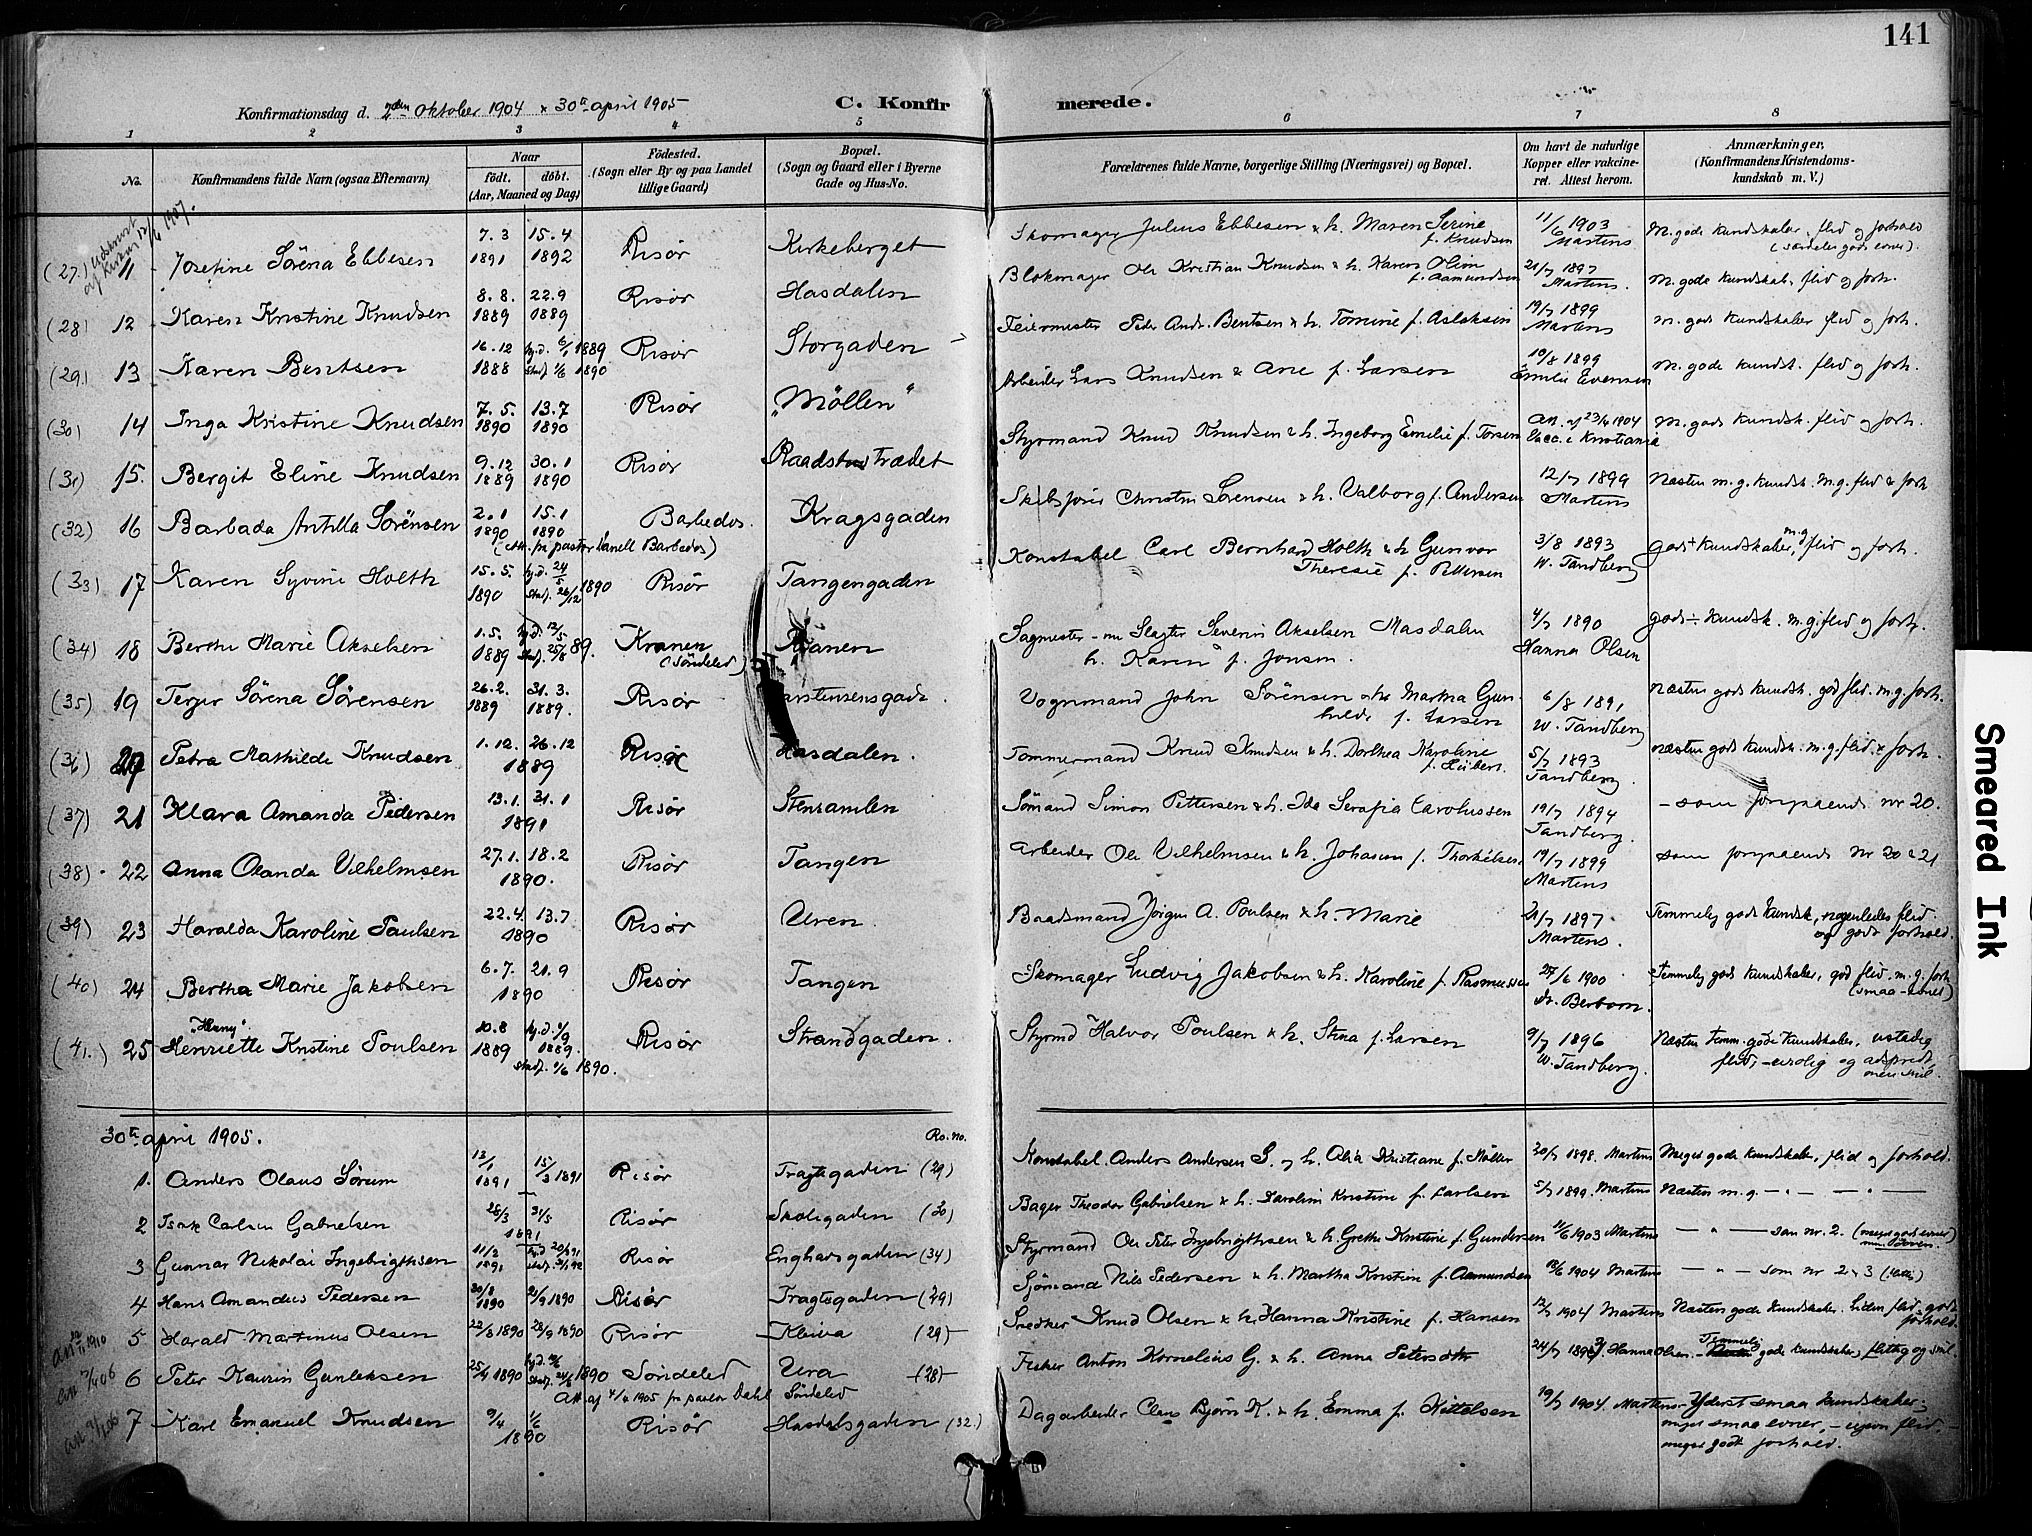 141
Konfirmationsdag d. 2den Oktober 1904 & 30te april 1905
C. Konfirmerede.
1 2 3 4 5 6 7 8
No.
Konfirmandens fulde Navn (ogsaa Efternavn)
Naar født. døbt. (Aar, Maaned og Dag)
Födested. (Sogn eller By og paa Landet tillige Gaard)
Bopæl. (Sogn og Gaard eller i Byerne Gade og Hus-No.
Forældrenes fulde Navne, borgerlige Stilling (Næringsvei) og Bopæl.
Om havt de naturlige Kopper eller vakcineret. Attest herom.
Anmærkninger, (Konfirmandens Kristendomskundskab m. V.)
(27) 11 Josefine Sörena Ebbesen 7.3 1891 15.4 1892 Risør Kirkeberget Skomager Julius Ebbesen & h. Maren Serine f. Knudsen 11/6 1903 Martens M. gode kundskaber, flid og forhold
(28) 12 Karen Kristine Knudsen 8.8. 1889 22.9 1889 Risør Hasdalen Blokmager Ole Kristian Knudsen & h. Karen Oline f. Aamundsen 21/7 1897 Martens. M. gode kundskab. flid og forh.
(29) 13 Karen Bentsen 16.12 1888 hj.d. 6/1 1889 Stadf. 1/6 1890 Risør Storgaden Feiermester Peder Andr. Bentsen & h. Tomine f. Aslaksen 19/7 1899 Martens M. gode kundskaber flid og forh.
(30) 14 Inga Kristine Knudsen 7.5. 1890 13.7 1890 Risør "Möllen" Arbeider Lars Knudsen & Ane f. Larsen 10/8 1899 Emilie Evensen M. gode kundsk. flid og forh.
(31) 15. Bergit Eline Knudsen 9.12 1889 30.1 1890 Risør Raadstutrædet Styrmand Knud Knudsen & h. Ingeborg Emelie f. Torsen Att. af 23/4 1904 Vacc. i Kristiania M. gode kundsk. flid og forh.
(32) 16 Barbada Antilla Sörensen 2.1 1890 15.1 1890 (Att. fr. pastor Barbados) Barbedos. Kragsgaden Skibsfører Christen Sørensen & h. Valborg f. Andersen 12/7 1899 Martens Næsten m.g. kundsk. M.g. flid & forh
(33) 17 Karen Syvine Holth 15.5. 1890 hj.d. 24/5 1890 Stadf. 26/12 Risør Tangengaden Konstabel Carl Bernhard Holth & h Gunvor Theresie f. Pettersen 3/8 1893 W. Tandberg god+ kundskaber, m.g. flid og forh.
(34) 18 Berthe Marie Akselsen 1.5. 1889 hj.d. 12/5 Stadf. 25/8 89. Kranen (Söndeled) Kranen Sagmester - nu Slagter Severin Akselsen Masdalen h. Karen f. Jonsen. 4/7 1890 Hanna Olsen god÷ kundsk. m.g. flid og forh.
(35) 19 Terjer Sörena Sörensen 26.2. 1889 31.3. 1889. Risør Carstensensgade. Vognmand John Sörensen & h. Martha Gunhilde f. Larsen 6/8 1891 W. Tandberg Næsten gode kundsk. god flid. m.g. forh.
(36) 20 Petra Mathilde Knudsen 1.12. 26.12 1889 Risør Hasdalen. Tømmermand Knud Knudsen & h. Dorthea Karoline f. Hübert. 5/7 1893 Tandberg. næsten gode kundsk. m.g. flid. & forh.
(37) 21 Klara Amanda Pedersen 13.1. 31.1 1891 Risør Stensamlen Sømand Simon Pettersen & h. Ida Serafia Carolussen 19/7 1894 Tandberg. - som forgaaende nr 20.
(38) 22 Anna Olanda Vilhelmsen 27.1. 18.2 1890. Risør Tangen Arbeider Ole Vilhelmsen & h. Johanne f. Thorkelsen 19/7 1899 Martens som forgaaende Nr 20 & 21
(39) 23 Haralda Karoline Paulsen 22.4. 13.7 1890 Risør Uren. Baadsmand Jörgen A. Poulsen & h. Marie 21/7 1897 Martens. Temmelig gode kundsk., nogenledes flid og godt forhold.
(40) 24 Bertha Marie Jakobsen 6.7. 21.9 1890 Risør Tangen Skomager Ludvig Jakobsen & h. Karoline f. Rasmussen 27/6 1900 Dr. Berbom. Temmelig gode kundskaber, god flid. m.g. forh. (smaa evner)
(41.) 25 "Henny" Henriette Kristine Poulsen 10.8 1889 hj.d. 1/9 1889. Stadf. 1/6 1890. Risør Strandgaden. Styrmd Halvor Poulsen & h. Stina f. Larsen 9/7 1896 W. Tandberg. Næsten temm. gode kundskaber, ustadig flid, - urolig og adspredt, men snil.
30te april 1905. Ro. no.
1. Anders Olaus Sörum 13/1 1891 15/3 1891 Risør Tragtsgaden (29) Konstabel. Anders Andersen S. og h. Alida Kristiane f. Møller 20/7 1898. Martens Meget gode kundskaber, flid og forhold.
2 Isak Carlsen Gabrielsen 28/3 31/5 1891 Risør Skolegaden (30) Bager Theodor Gabrielsen & h. Karoline Kristine f. Carlsen 5/7 1899. Martens Næsten m.g. - " - - " -
3 Gunnar Nikolai Ingebrigthsen 11/2 1891 Risør Enghavsgaden (34) Styrmand Ole Peter Ingebrigthsen & h. Grethe Kristine f. Gundersen 11/6 1903 Martens - " - som nr. 2. (meget gode evner)
4 Hans Amandus Pedersen 30/8 1890 21/9 1890 Risør Tragtsgaden (29) Sjömand Nils Pedersen & h. Martha Kristine f. Aamundsen 13/6 1904 Martens - " - som nr 2 & 3
5 Harald Martinus Olsen 22/8 1890 28/9 1890 Risør Kleiva (29) Snedker Knud Olsen & h. Hanna Kristine f. Hansen 12/7 1904 Martens Næsten gode kundskaber. Liden flid, godt forhold.
6 Peter Kaurin Gunleksen 25/4 1890 Söndeled Ura (28) Att. af 4/4 1905 fr. pastor Dahl Söndeled Fisker Anton Kornelius G. & h. Anna Petersdtr Hanna Olsen. - Temmelig gode kundskaber, flittig og snil.
7 Karl Emanuel Knudsen 9/4 1/6 1890 Risør Hasdalsgaden (32.) Dagarbeider Claus Bjørn K. & h. Emma f. Kittelsen 19/7 1904. Martens - Yderst smaa kundskaber; meget smaa evner, - ujevn flid, - meget godt forhold.
Smeared Ink